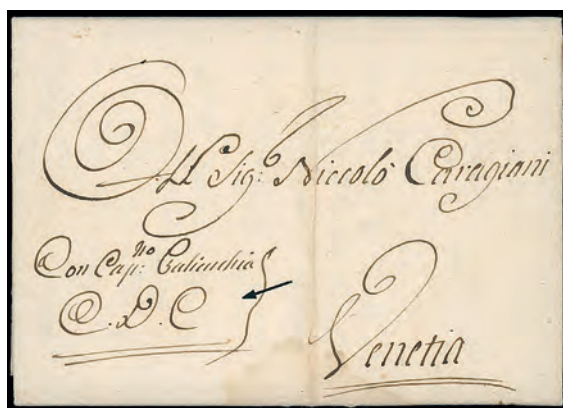 All Sig: Niccolò Caragiani
Con Cap:no Calicuchia
C. D. C
Venetia